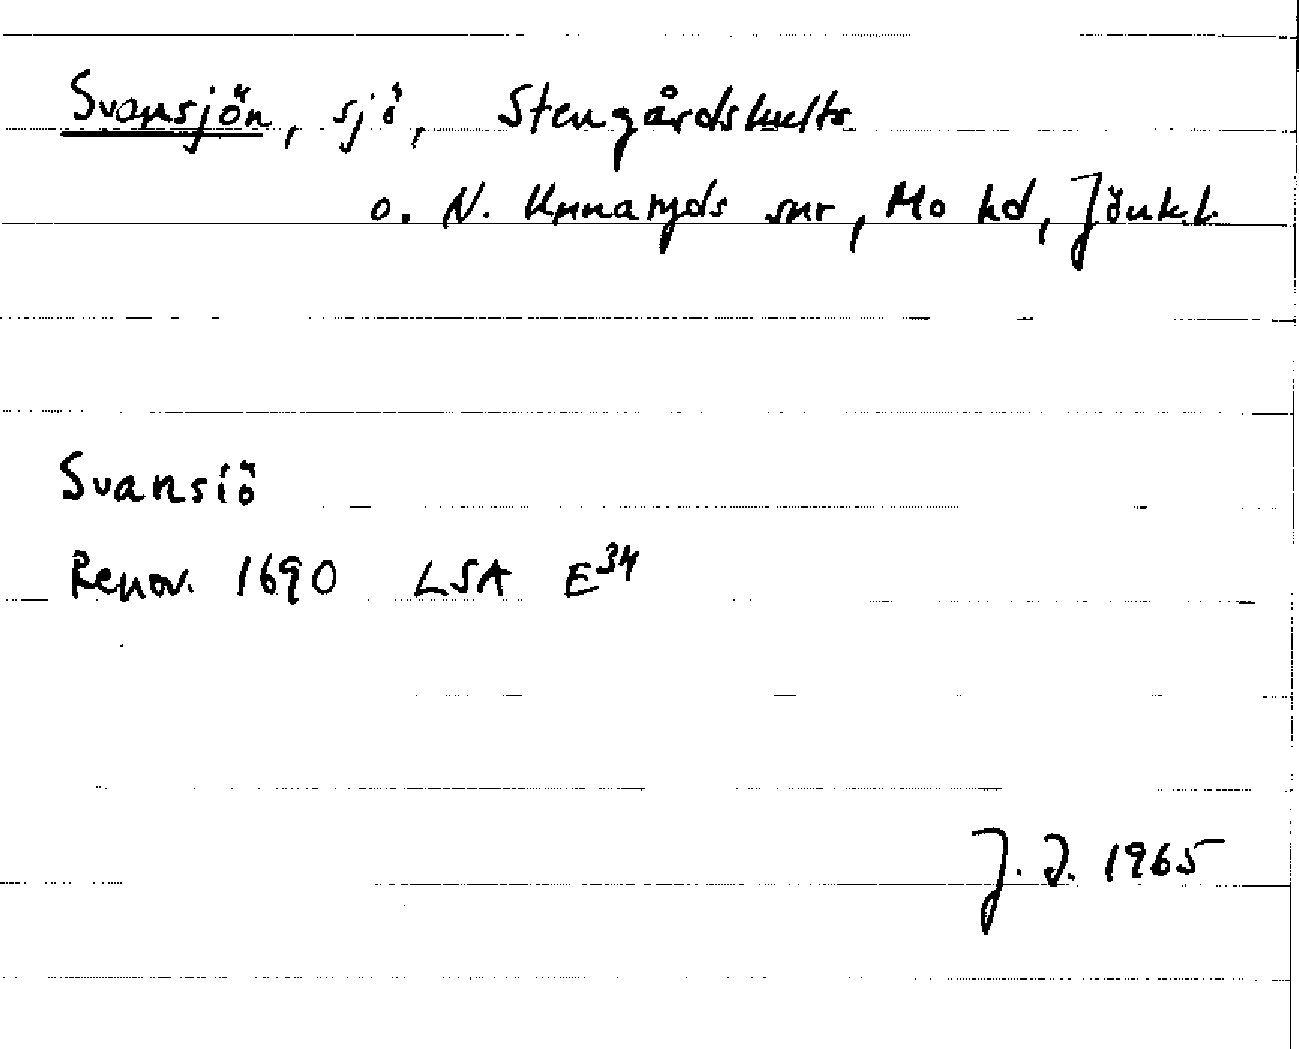 Svansjön, sjö, Stengårdshults
o. N. Unnaryds snr, Mo hd, Jönk.l.
Svansiö
Renov. 1690 LSA E34
J. I. 1965